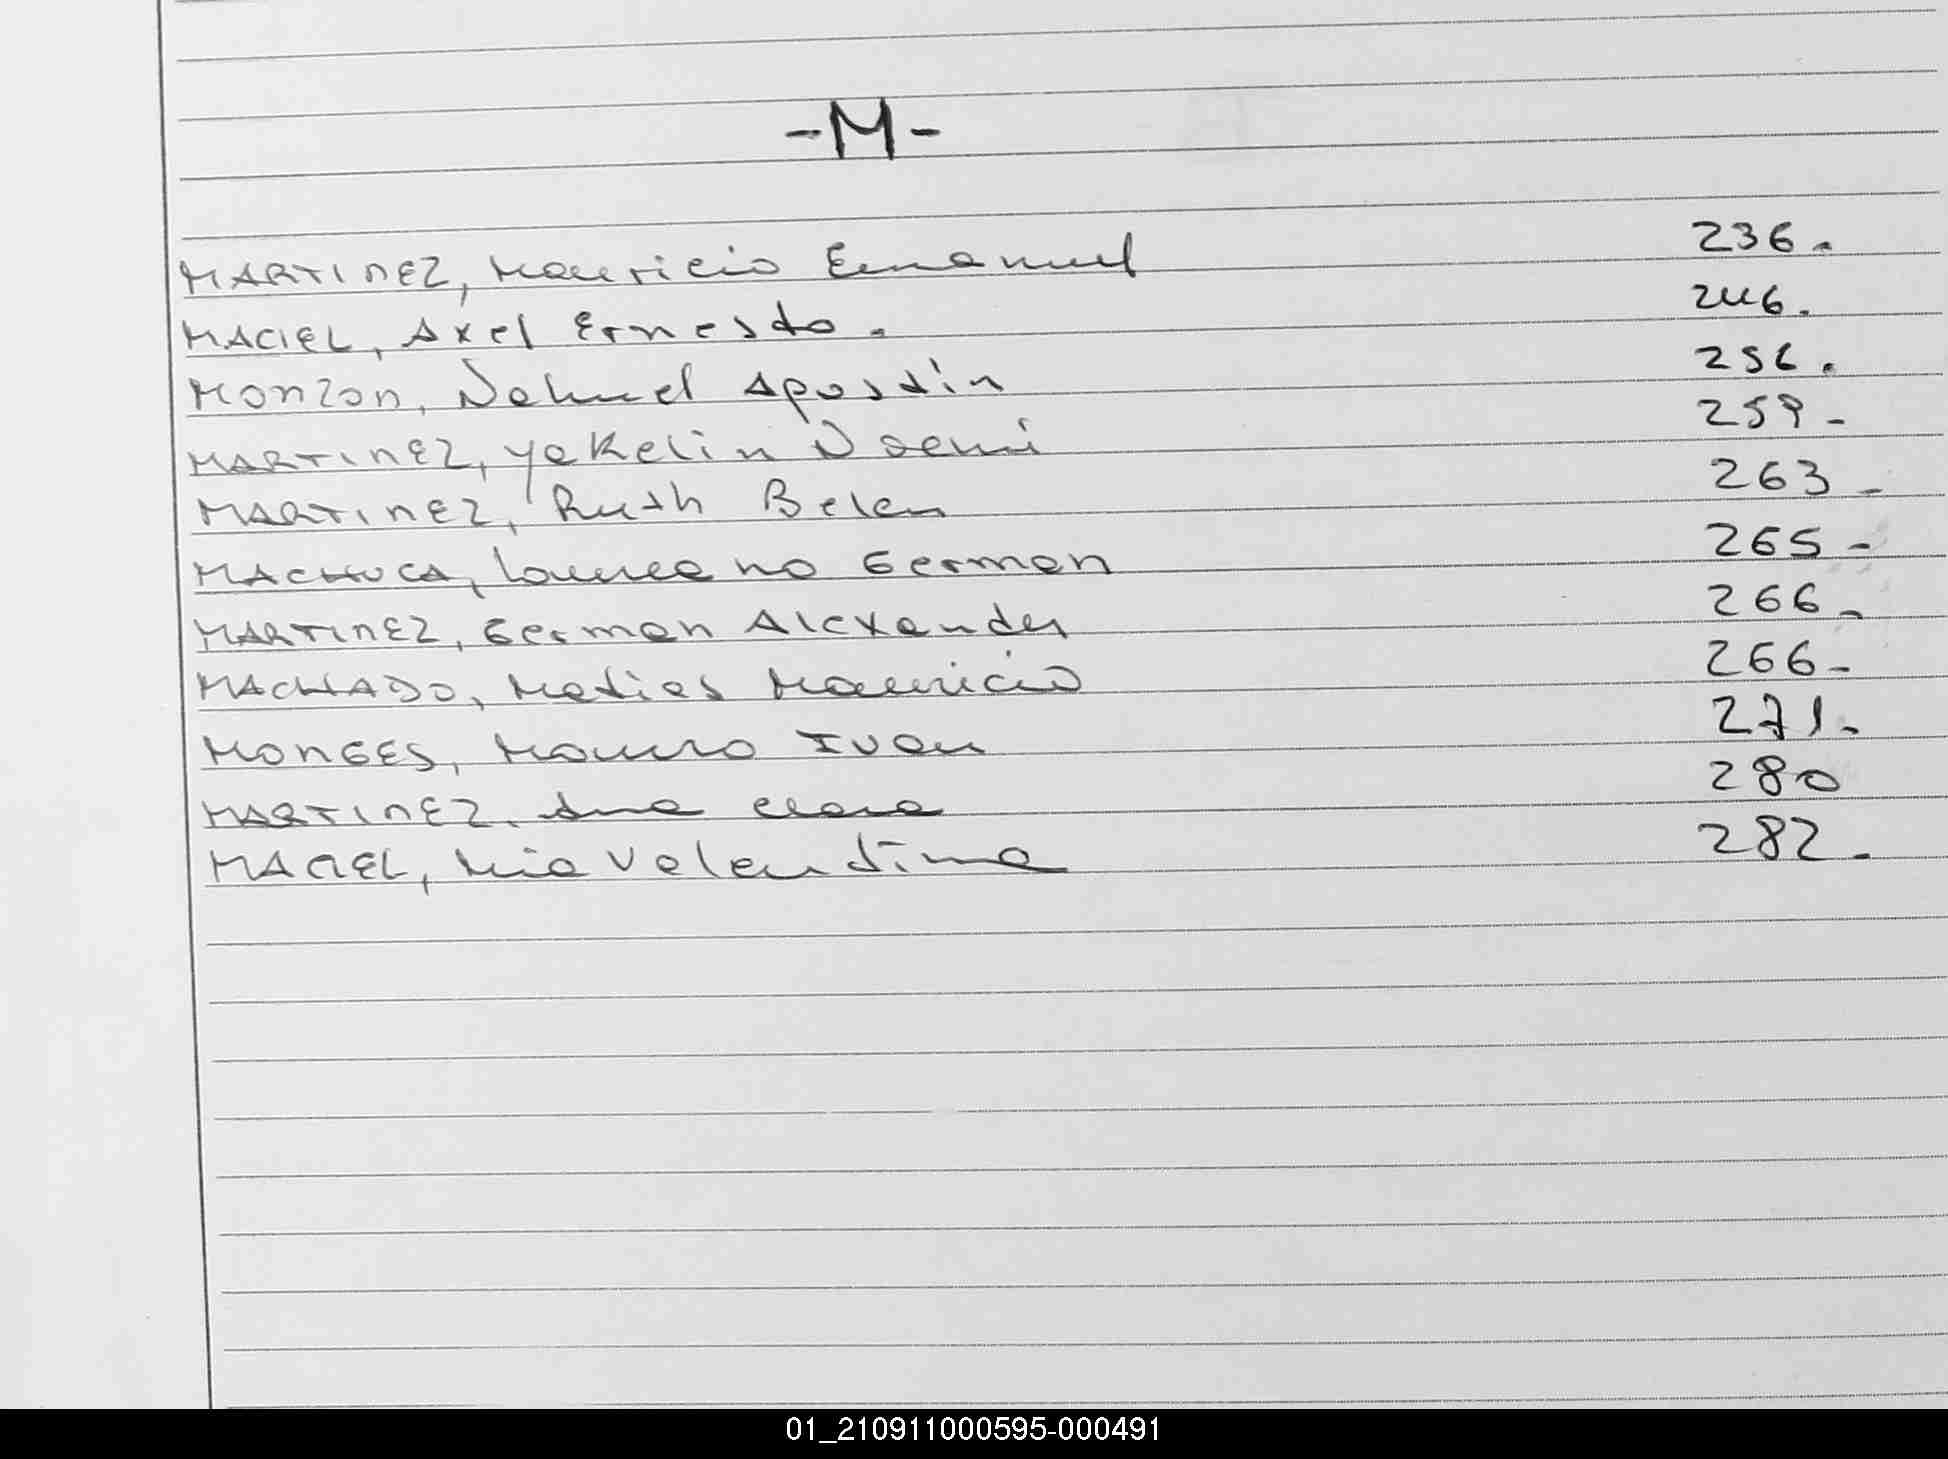 -M-
MARTINEZ, Mauricio Emanuel 236.
MACIEL, Axel Ernesto. 246.
MONZON, Nahuel Agostin 256.
MARTINEZ, Yakelin Noemi 259-
MARTINEZ, Ruth Belen 263-
MACHUCA, Laureano German 265-
MARTINEZ, German Alexander 266-
MACHADO, Matias Mauricio 266-
MONGES, Mauro Ivan 271.
MARTINEZ, Ana Clara 280
MACIEL, Mia Valentina 282-
01_210911000595-000491